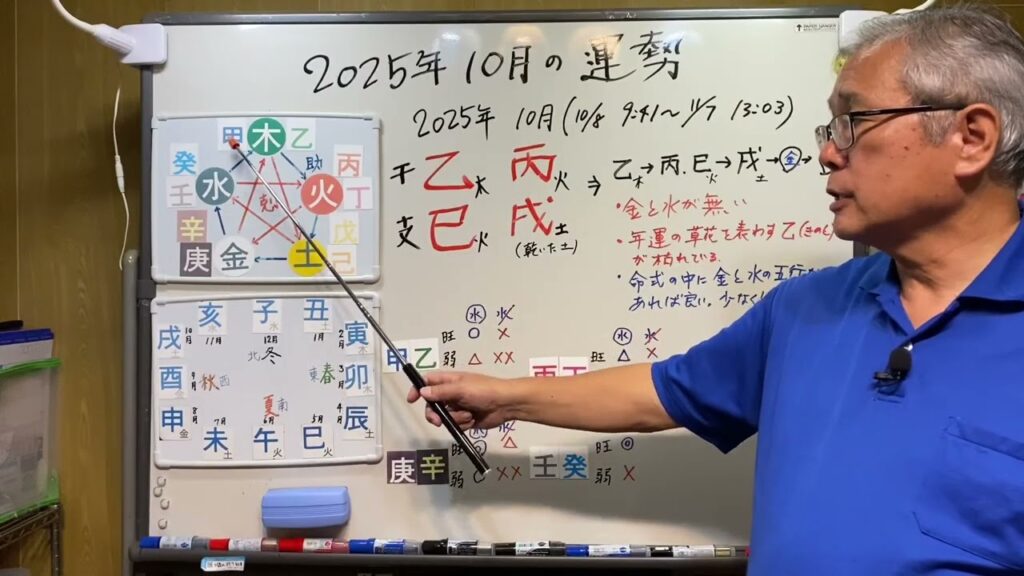 2025年10月の運勢
2025年 10月(10/8 9:41〜11/7 13:03)
甲 木 乙
癸 助 丙
壬 水 火 丁
剋
辛 戊
庚 金 土 己
干 乙木 丙火 ⇒ 乙木→丙、巳火→戌土→金→
支 巳火 戌土
(乾いた土)
・金と水が無い
・年運の草花を表わす乙(きのと)
が枯れている
・命式の中に金と水の五行
あれば良い。少なく
亥 子 丑
水 水 土
11月 12月 1月
戌 土 10月 北 冬 寅 2月
酉 9月 秋 西 東 春 卯 3月 木
申 金 8月 夏 南 辰 4月 土
7月 6月 5月
未 午 巳
土 火 火
水 水
甲 乙 旺 ○ ×
弱 △ ××
水 水
丙 丁 旺 △ ×
水
△
庚 辛 旺
弱 ××
壬 癸 旺 ◎
弱 ×